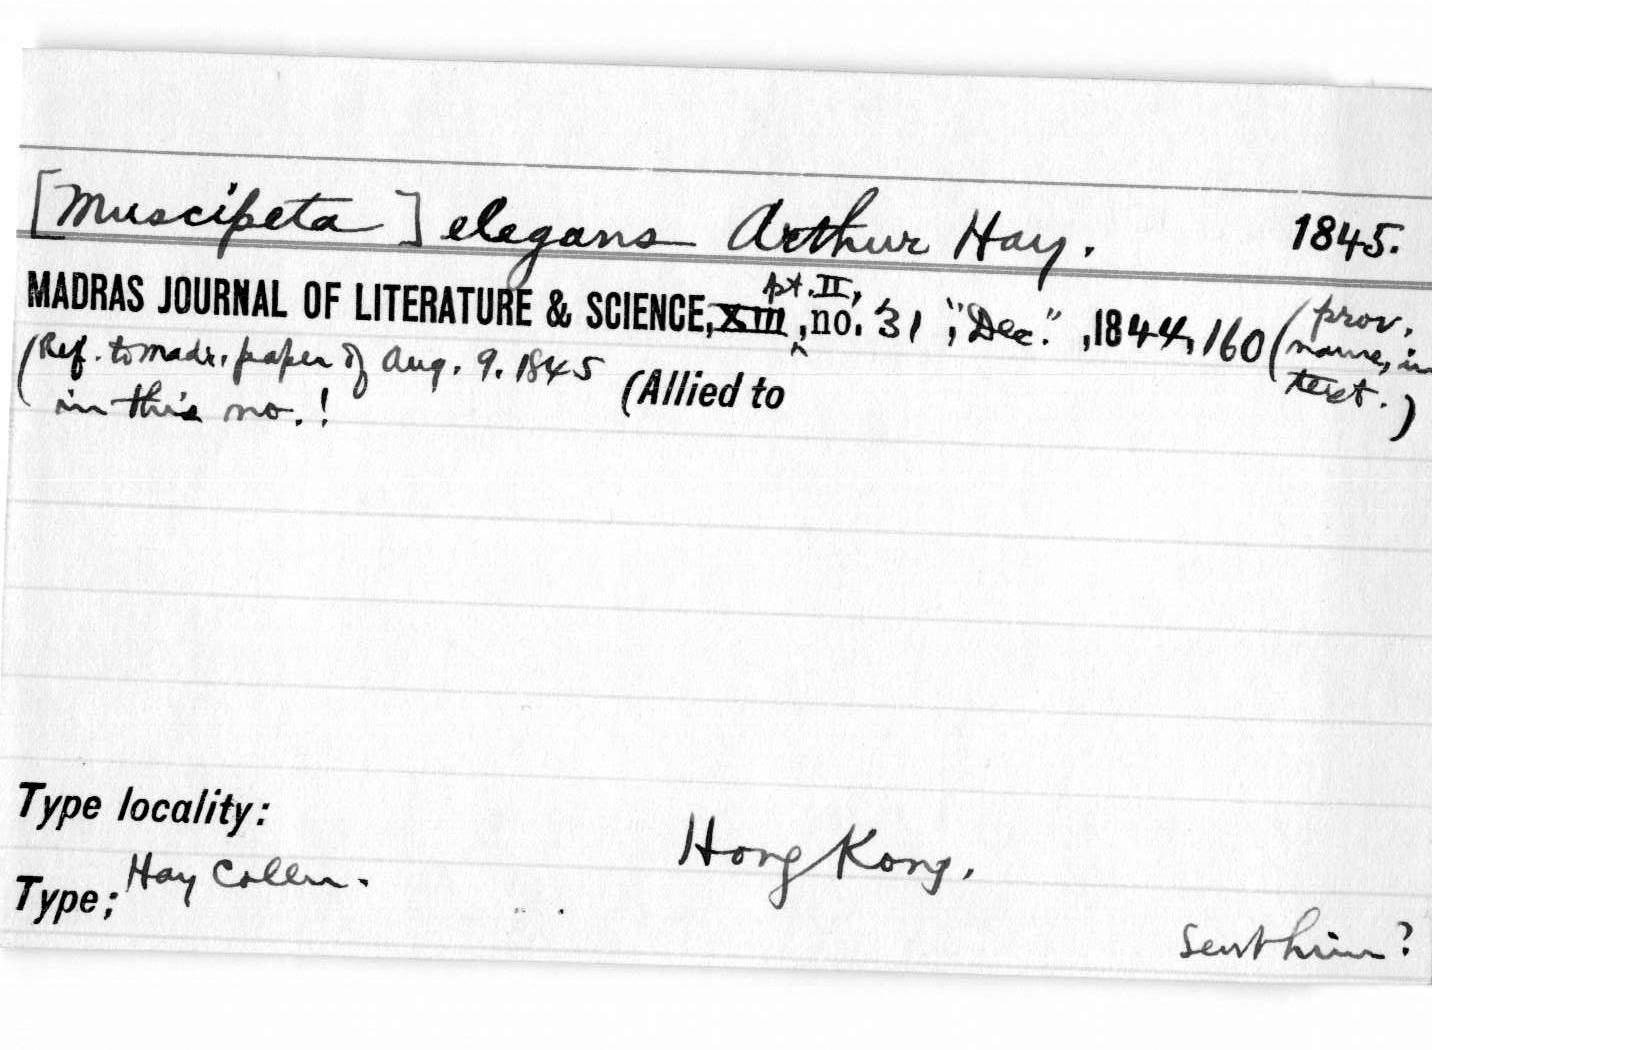 [Muscipeta] elegans Arthur Hay. 1845.
MADRAS JOURNAL OF LITERATURE & SCIENCE, XIII, pt. II, no. 31, "Dec.", 1844, 160 (prov. name, in text.)
(Ref. to Madr. paper of Aug. 9. 1845
in this no.! (Allied to
Type locality:
Hong Kong.
Type; Hay Colln.
Sent him?